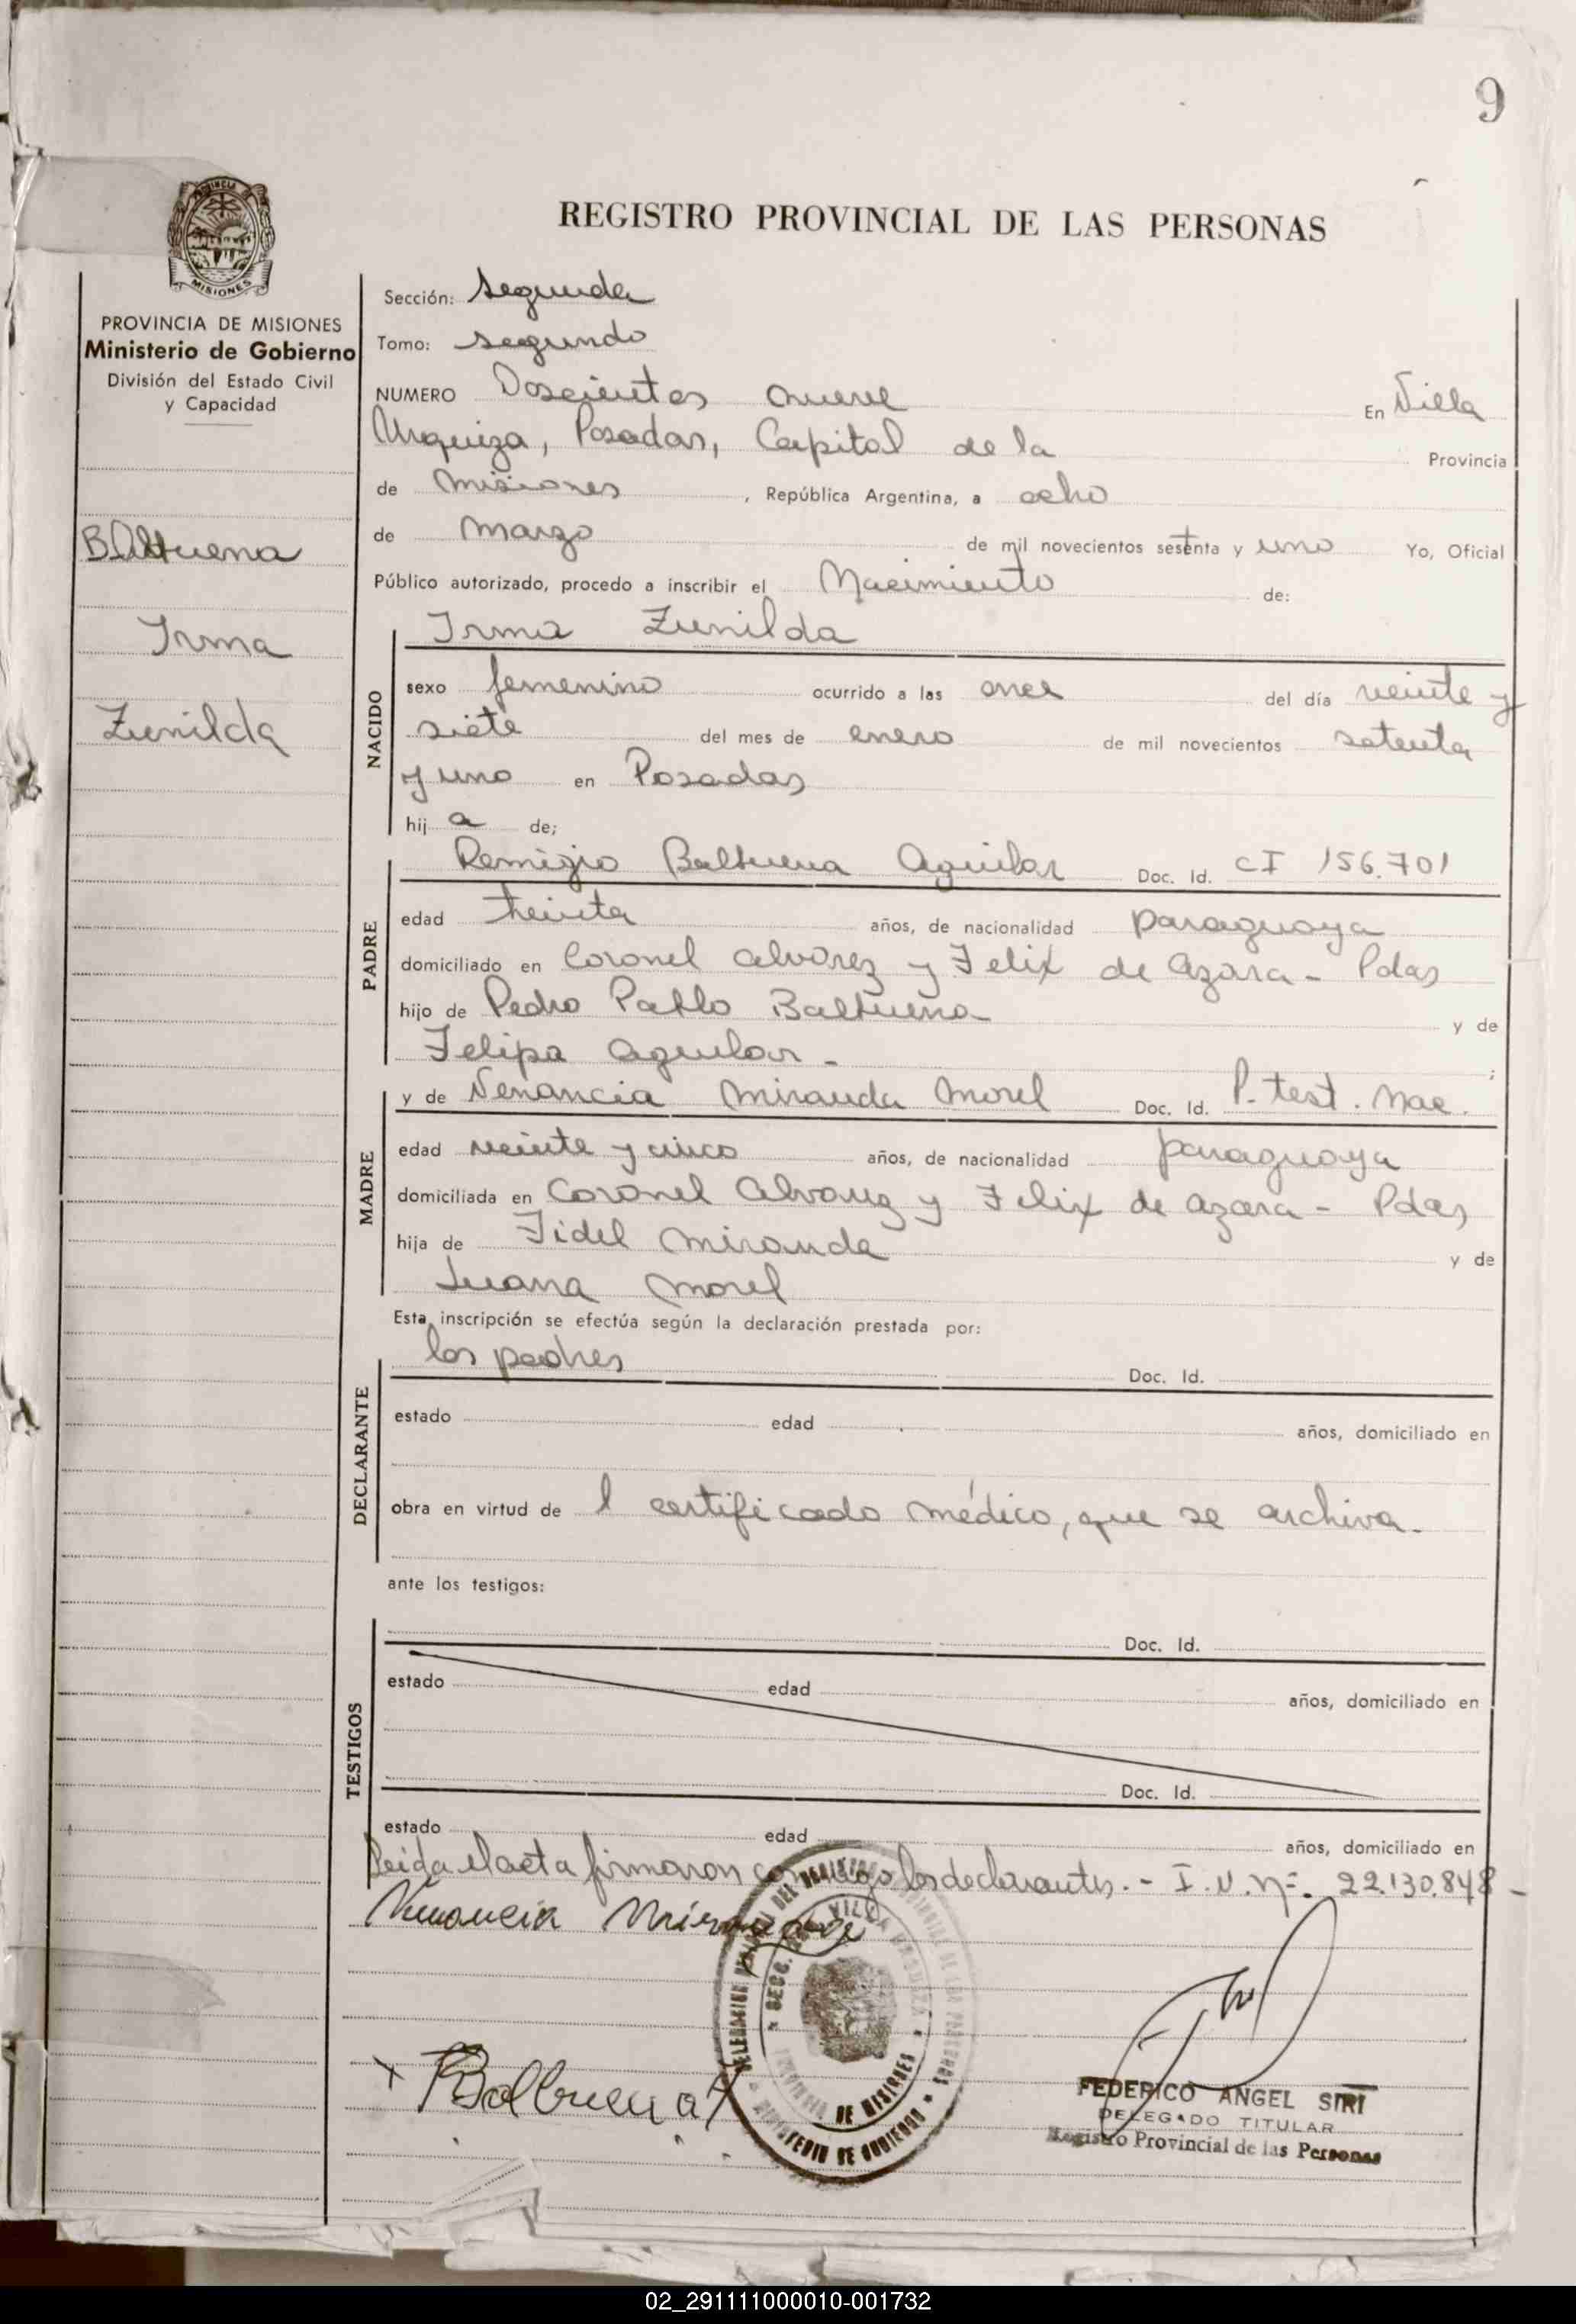 9
REGISTRO PROVINCIAL DE LAS PERSONAS
PROVINCIA
MISIONES
PROVINCIA DE MISIONES
Ministerio de Gobierno
División del Estado Civil
y Capacidad
Balbuena
Irma
Zunilda
Sección: Segunda
Tomo: segundo
NUMERO Doscientos nueve En Villa
Urquiza, Posadas, Capital de la Provincia
de Misiones, República Argentina, a ocho
de Marzo de mil novecientos setenta y uno Yo, Oficial
Público autorizado, procedo a inscribir el Nacimiento de:
Irma Zunilda
NACIDO
sexo femenino ocurrido a las once del día veinte y
siete del mes de enero de mil novecientos setenta
y uno en Posadas
hij a de;
Remigio Balbuena Aguilar Doc. Id. CI 156.701
PADRE
edad treinta años, de nacionalidad paraguaya
domiciliado en Coronel Alvarez y Felix de Azara - Pdas
hijo de Pedro Pablo Balbuena y de
Felipa Aguilar - ;
y de Venancia Miranda Morel Doc. Id. P. test. Nac.
MADRE
edad veinte y cinco años, de nacionalidad paraguaya
domiciliada en Coronel Alvarez y Felix de Azara - Pdas
hija de Fidel Miranda y de
Juana Morel
Esta inscripción se efectúa según la declaración prestada por:
los padres Doc. Id.
DECLARANTE
estado edad años, domiciliado en
obra en virtud de l certificado médico, que se archiva.
ante los testigos:
Doc. Id.
TESTIGOS
estado edad años, domiciliado en
Doc. Id.
estado edad años, domiciliado en
Leida el acta firmaron conmigo los declarantes. - I.N.Nº. 22.130.848 -
Venancia Miranda
SECC. VILLA URQUIZA
PROVINCIA DE MISIONES
MINISTERIO DE GOBIERNO
x RBalbuena
FEDERICO ANGEL SIRI
DELEGADO TITULAR
Registro Provincial de las Personas
02_291111000010-001732